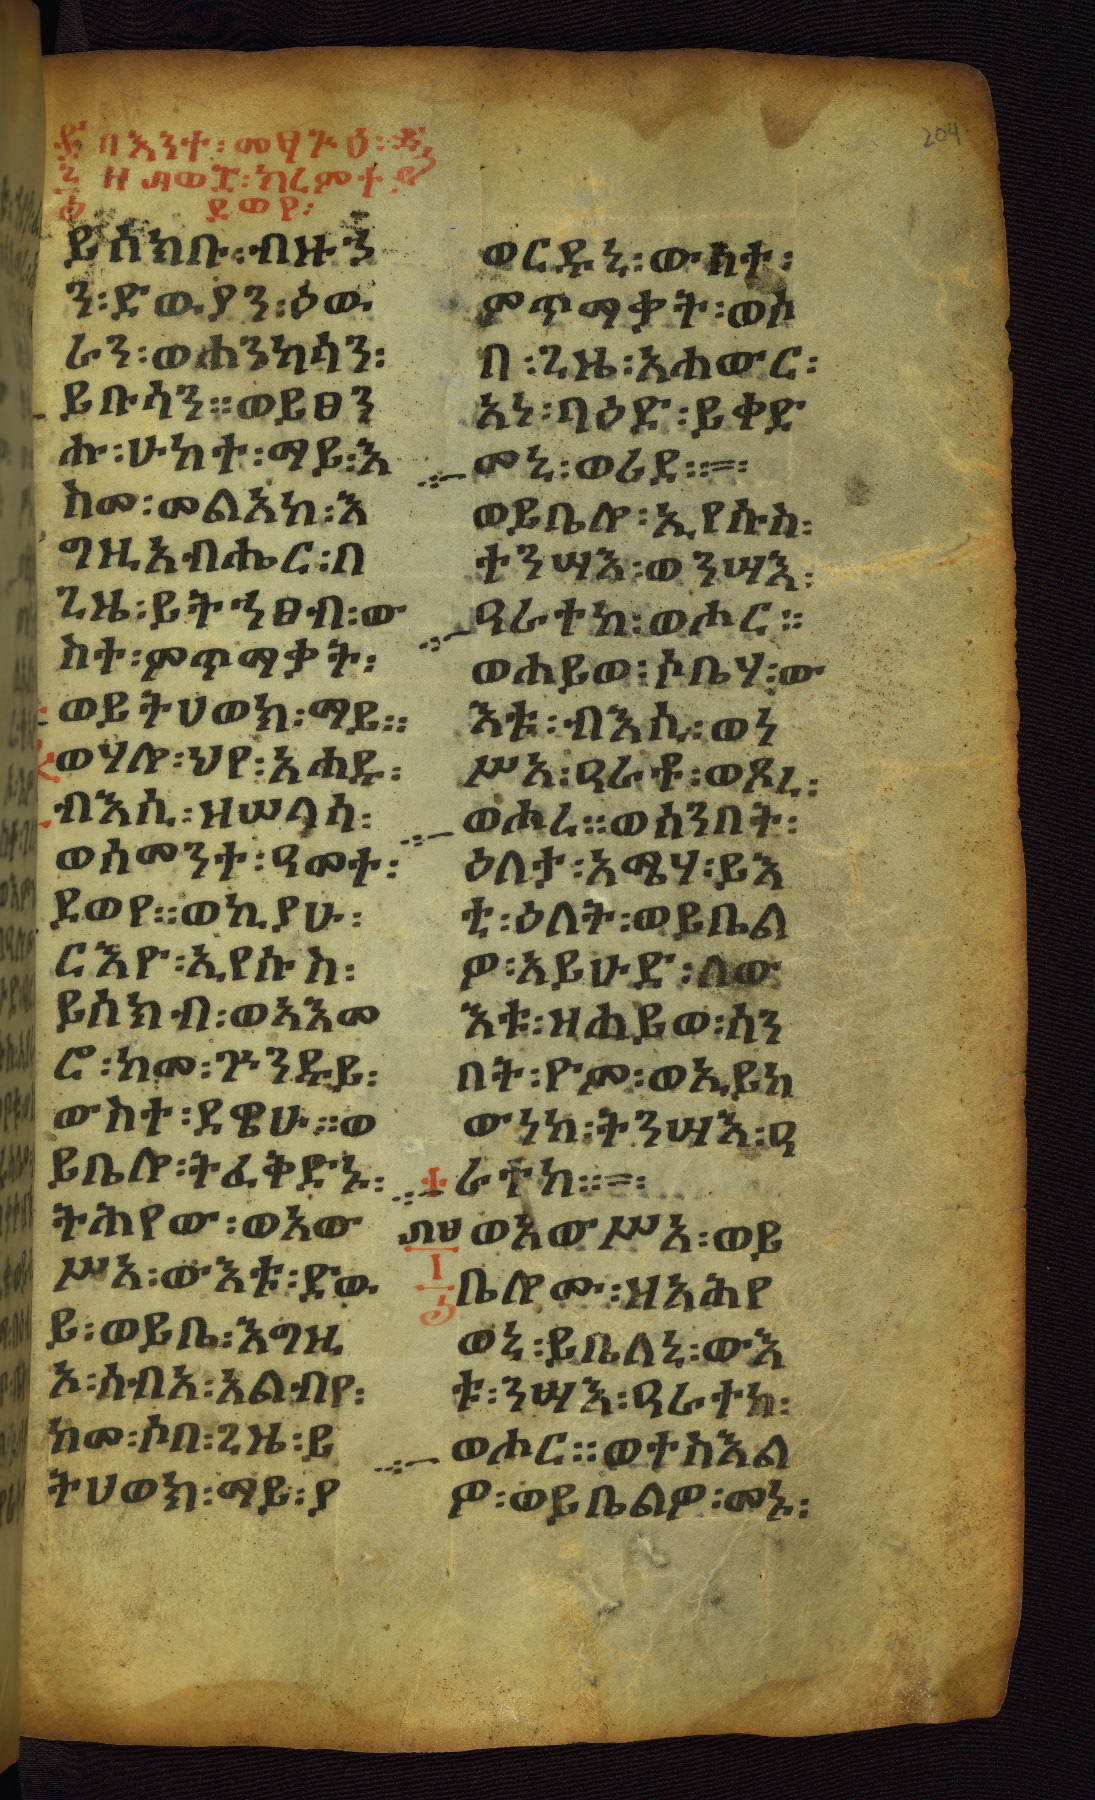 በእንተ፡መፃጉዕ፡
ዘ፴ወ፰፡ክረምተ
ደወየ፡
ይሰክቡ፡ብዙኃ
ን፡ድዉያን፡ዕዉ
ራን፡ወሐንካሳን፡
ይቡሳን።ወይፀን
ሑ፡ሁከተ፡ማይ፡እ
ስመ፡መልአከ፡እ
ግዚአብሔር፡በ
ጊዜ፡ይትኀፀብ፡ው
ስተ፡ምጥማቃት፡
ወይትሀወክ፡ማይ።
ወሃሎ፡ህየ፡አሐዱ፡
ብእሲ፡ዘሠላሳ፡
ወሰመንተ፡ዓመተ፡
ደወየ።ወኪያሁ፡
ርእዮ፡ኢየሱስ፡
ይሰክብ፡ወአእመ
ሮ፡ከመ፡ጕንዱይ፡
ውስተ፡ደዌሁ።ወ
ይቤሎ፡ትፈቅድኑ፡
ትሕየው፡ወአው
ሥአ፡ውእቱ፡ድዉ
ይ፡ወይቤ፡እግዚ
አ፡ሰብአ፡አልብየ፡
ከመ፡ሶበ፡ጊዜ፡ይ
ትሀወክ፡ማይ፡ያ
ወርዱኒ፡ውስተ፡
ምጥማቃት፡ወሶ
በ፡ጊዜ፡አሐውር፡
አነ፡ባዕድ፡ይቀድ
መኒ፡ወሪደ።=፡
ወይቤሎ፡ኢየሱስ፡
ተንሣእ፡ወንሣእ፡
ዓራተከ፡ወሑር።
ወሐይወ፡ሶቤሃ፡ው
እቱ፡ብእሲ፡ወነ
ሥአ፡ዓራቶ፡ወጾረ፡
ወሖረ።ወሰንበት፡
ዕለታ፡አሜሃ፡ይእ
ቲ፡ዕለት፡ወይቤል
ዎ፡አይሁድ፡ለው
እቱ፡ዘሐይወ፡ሰን
በት፡ዮም፡ወኢይከ
ውነከ፡ትንሣእ፡ዓ
ራተከ።=፡
ወአውሥአ፡ወይ
ቤሎሙ፡ዘአሕየ
ወኒ፡ይቤለኒ፡ውእ
ቱ፡ንሣእ፡ዓራተከ፡
ወሑር።ወተስእል
ዎ፡ወይቤልዎ፡መኑ፡
204